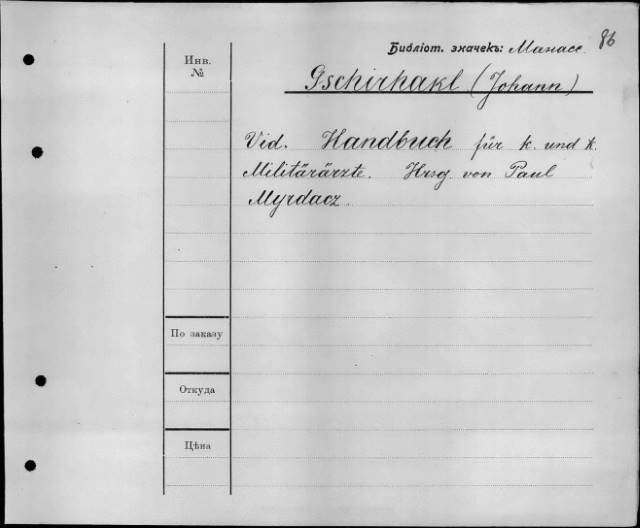 86
Библіот. значекъ: Манасс.
Инв.
№
Gschirhakl (Johann)
Vid. Handbuch für k. und k.
Militärärzte. Hrsg. von Paul
Myrdacz.
По заказу
Откуда
Цѣна